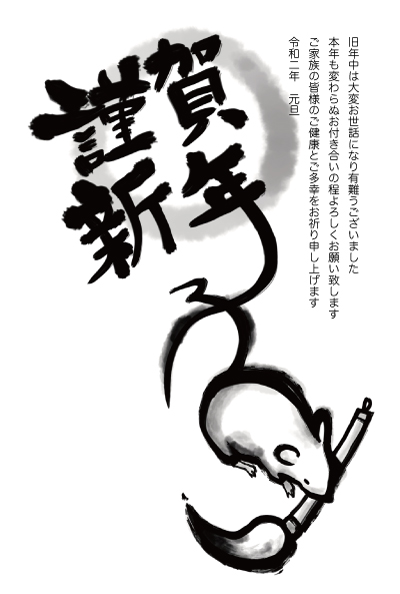 謹賀新年
旧年中は大変お世話になり有難うございました
本年も変わらぬお付き合いの程よろしくお願い致します
ご家族の皆様のご健康とご多幸をお祈り申し上げます
令和二年　元旦